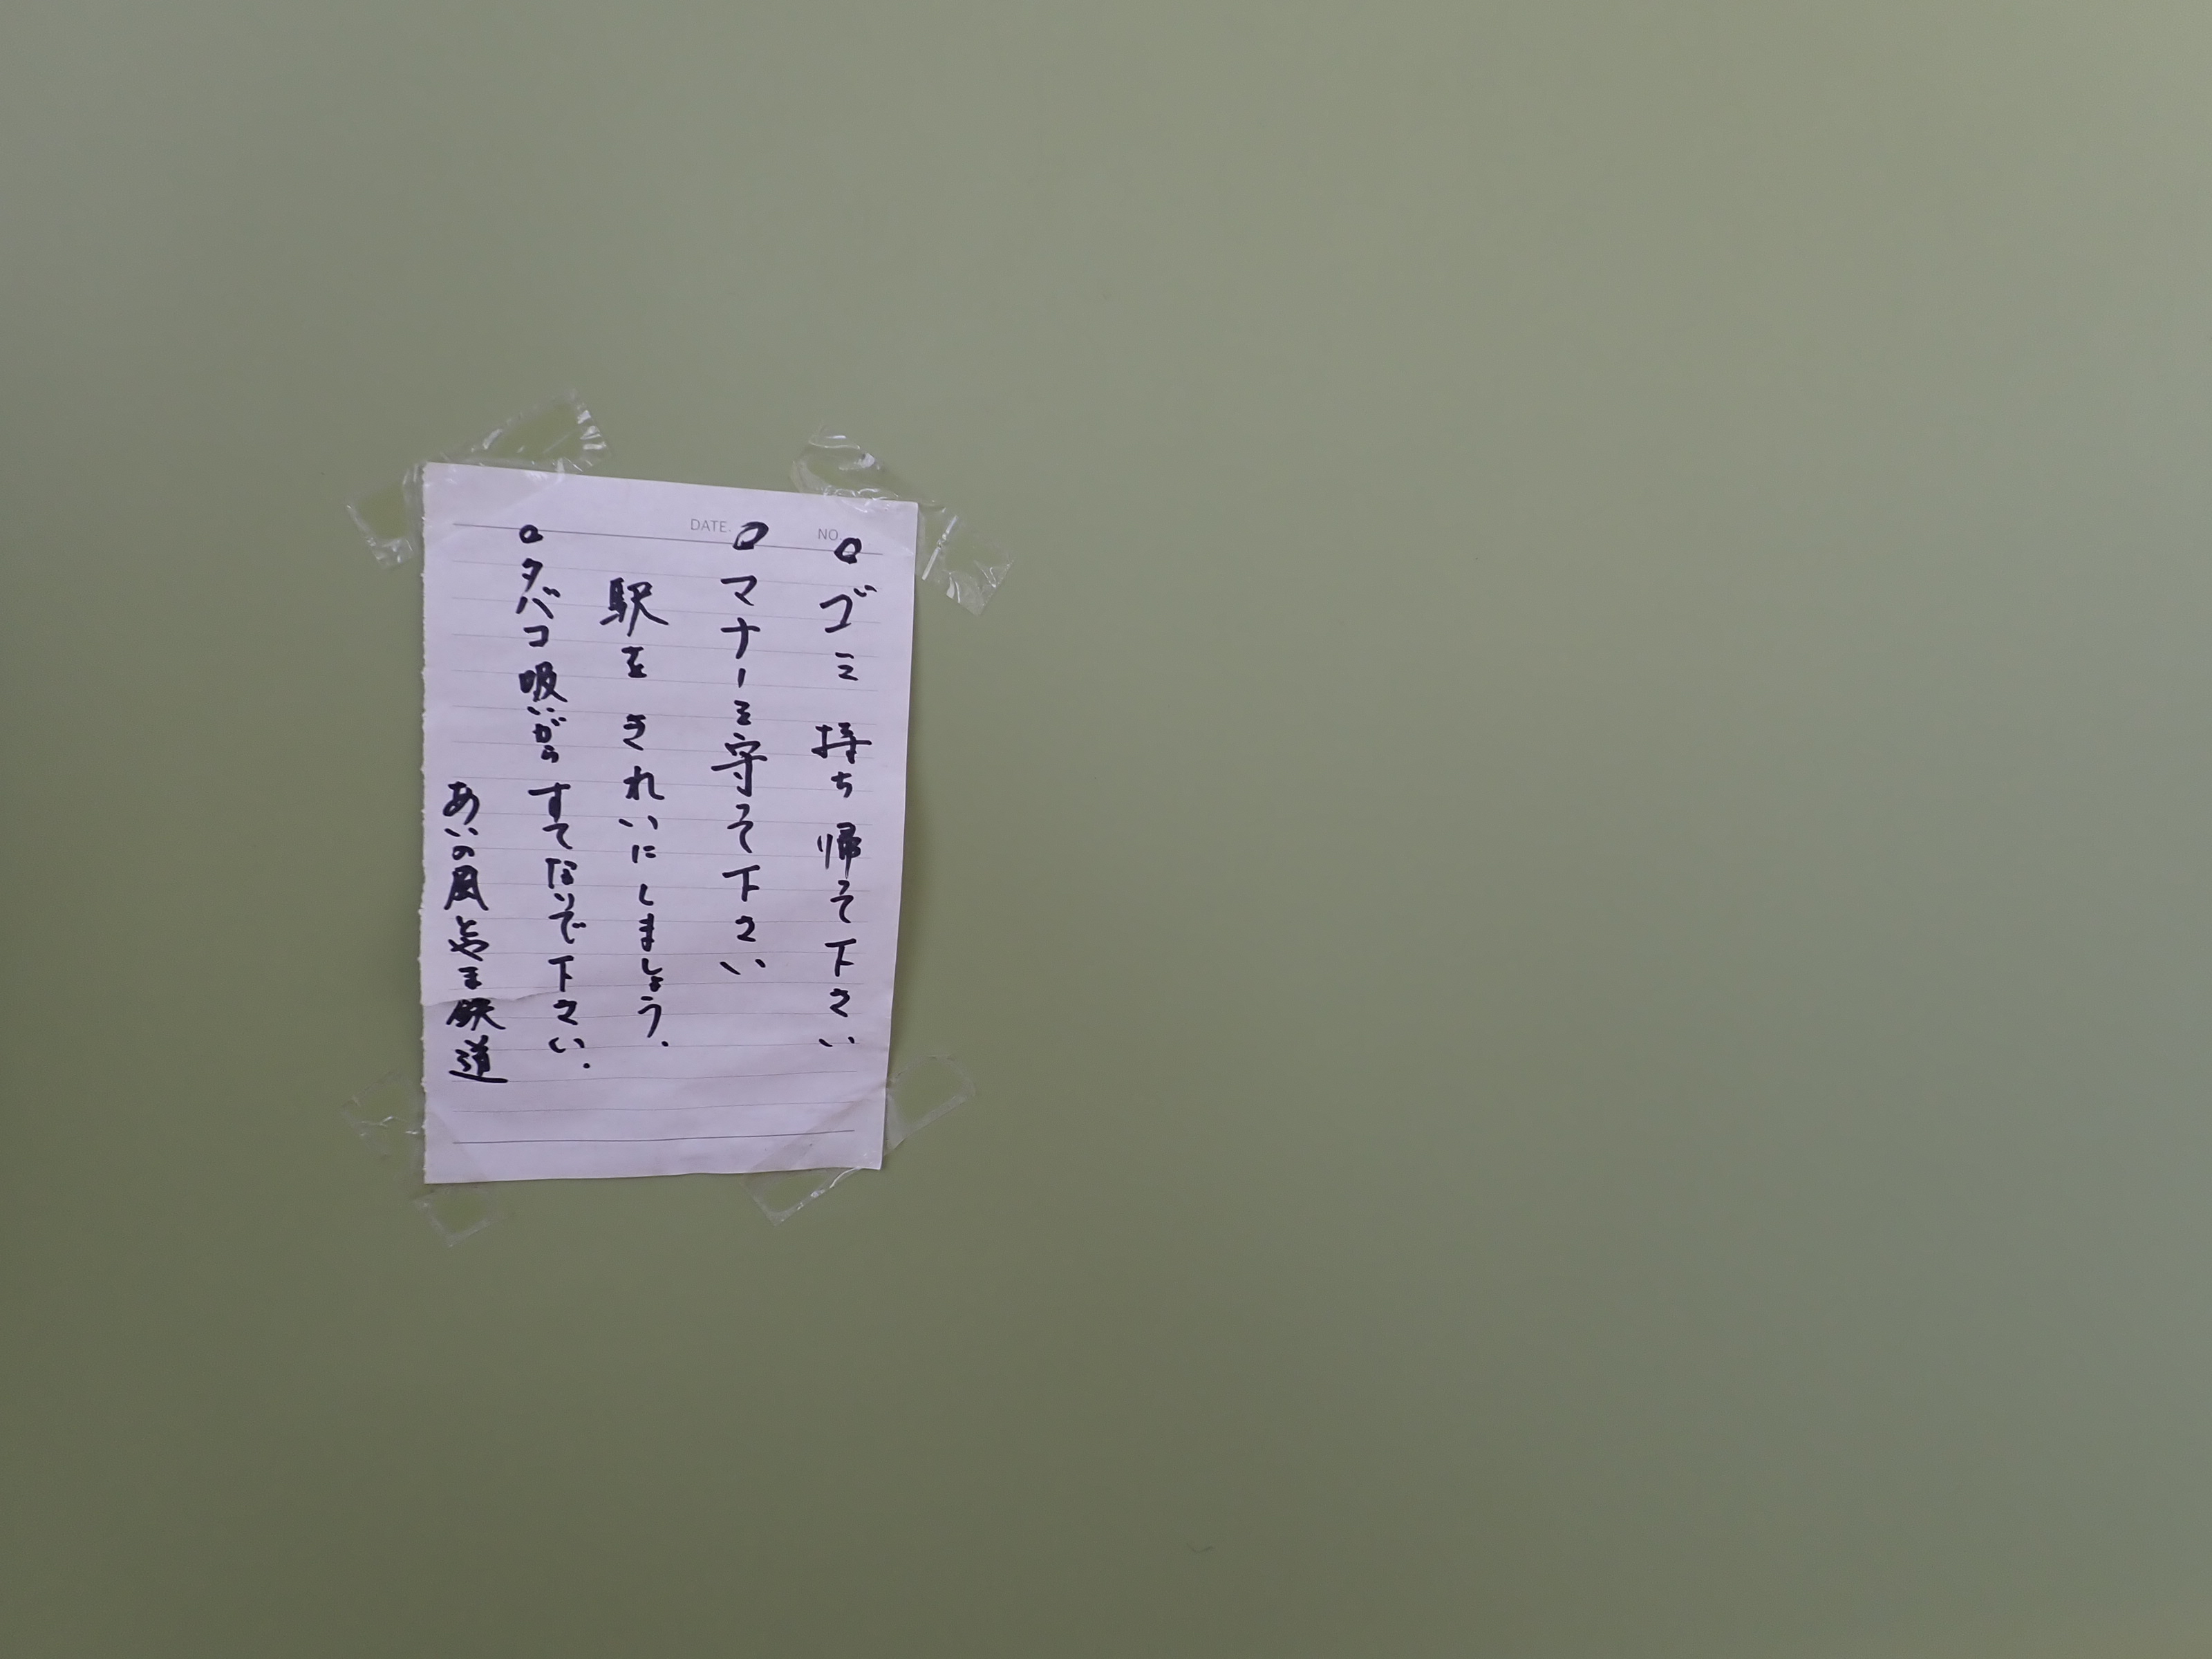 DATE.
NO.
○ゴミ 持ち帰って下さい
○マナーを守って下さい
駅をきれいにしましょう.
○タバコ吸いがらすてないで下さい.
あいの風とやま鉄道